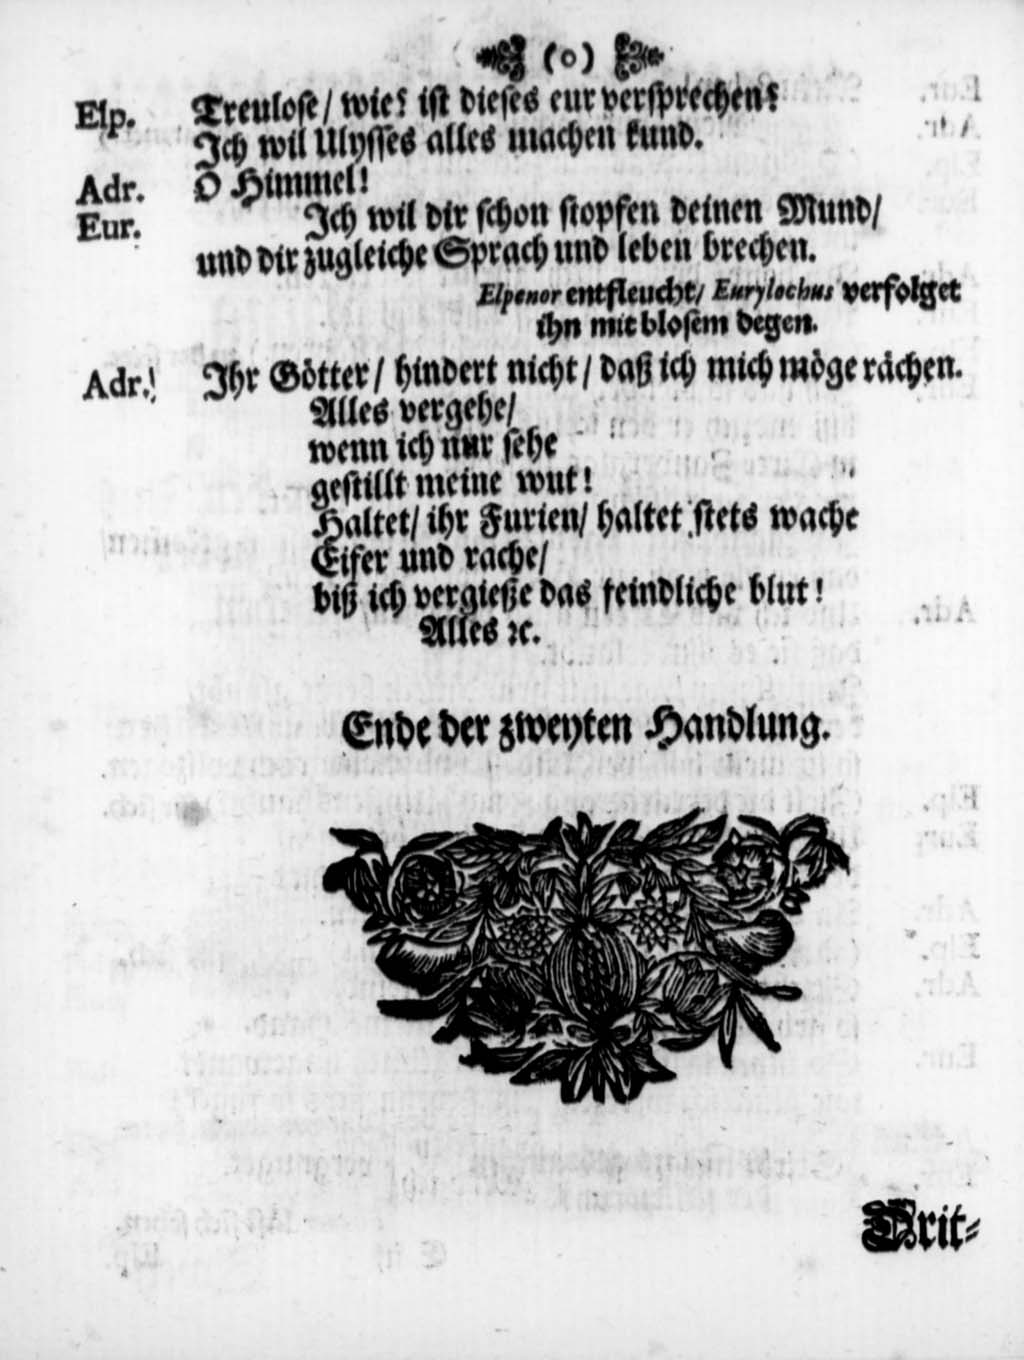 (o)
Elp. Treulose/ wie? ist dieses eur versprechen?
Ich wil Ulysses alles machen kund.
Adr. O Himmel!
Eur. Ich wil dir schon stopfen deinen Mund/
und dir zugleiche Sprach und leben brechen.
Elpenor entfleucht/ Eurylochus verfolget
ihn mit blosem degen.
Adr. Ihr Götter/ hindert nicht/ daß ich mich möge rächen.
Alles vergehe/
wenn ich nur sehe
gestillt meine wut!
Haltet/ ihr Furien/ haltet stets wache
Eifer und rache/
biß ich vergieße das feindliche blut!
Alles ꝛc.
Ende der zweyten Handlung.
Drit-